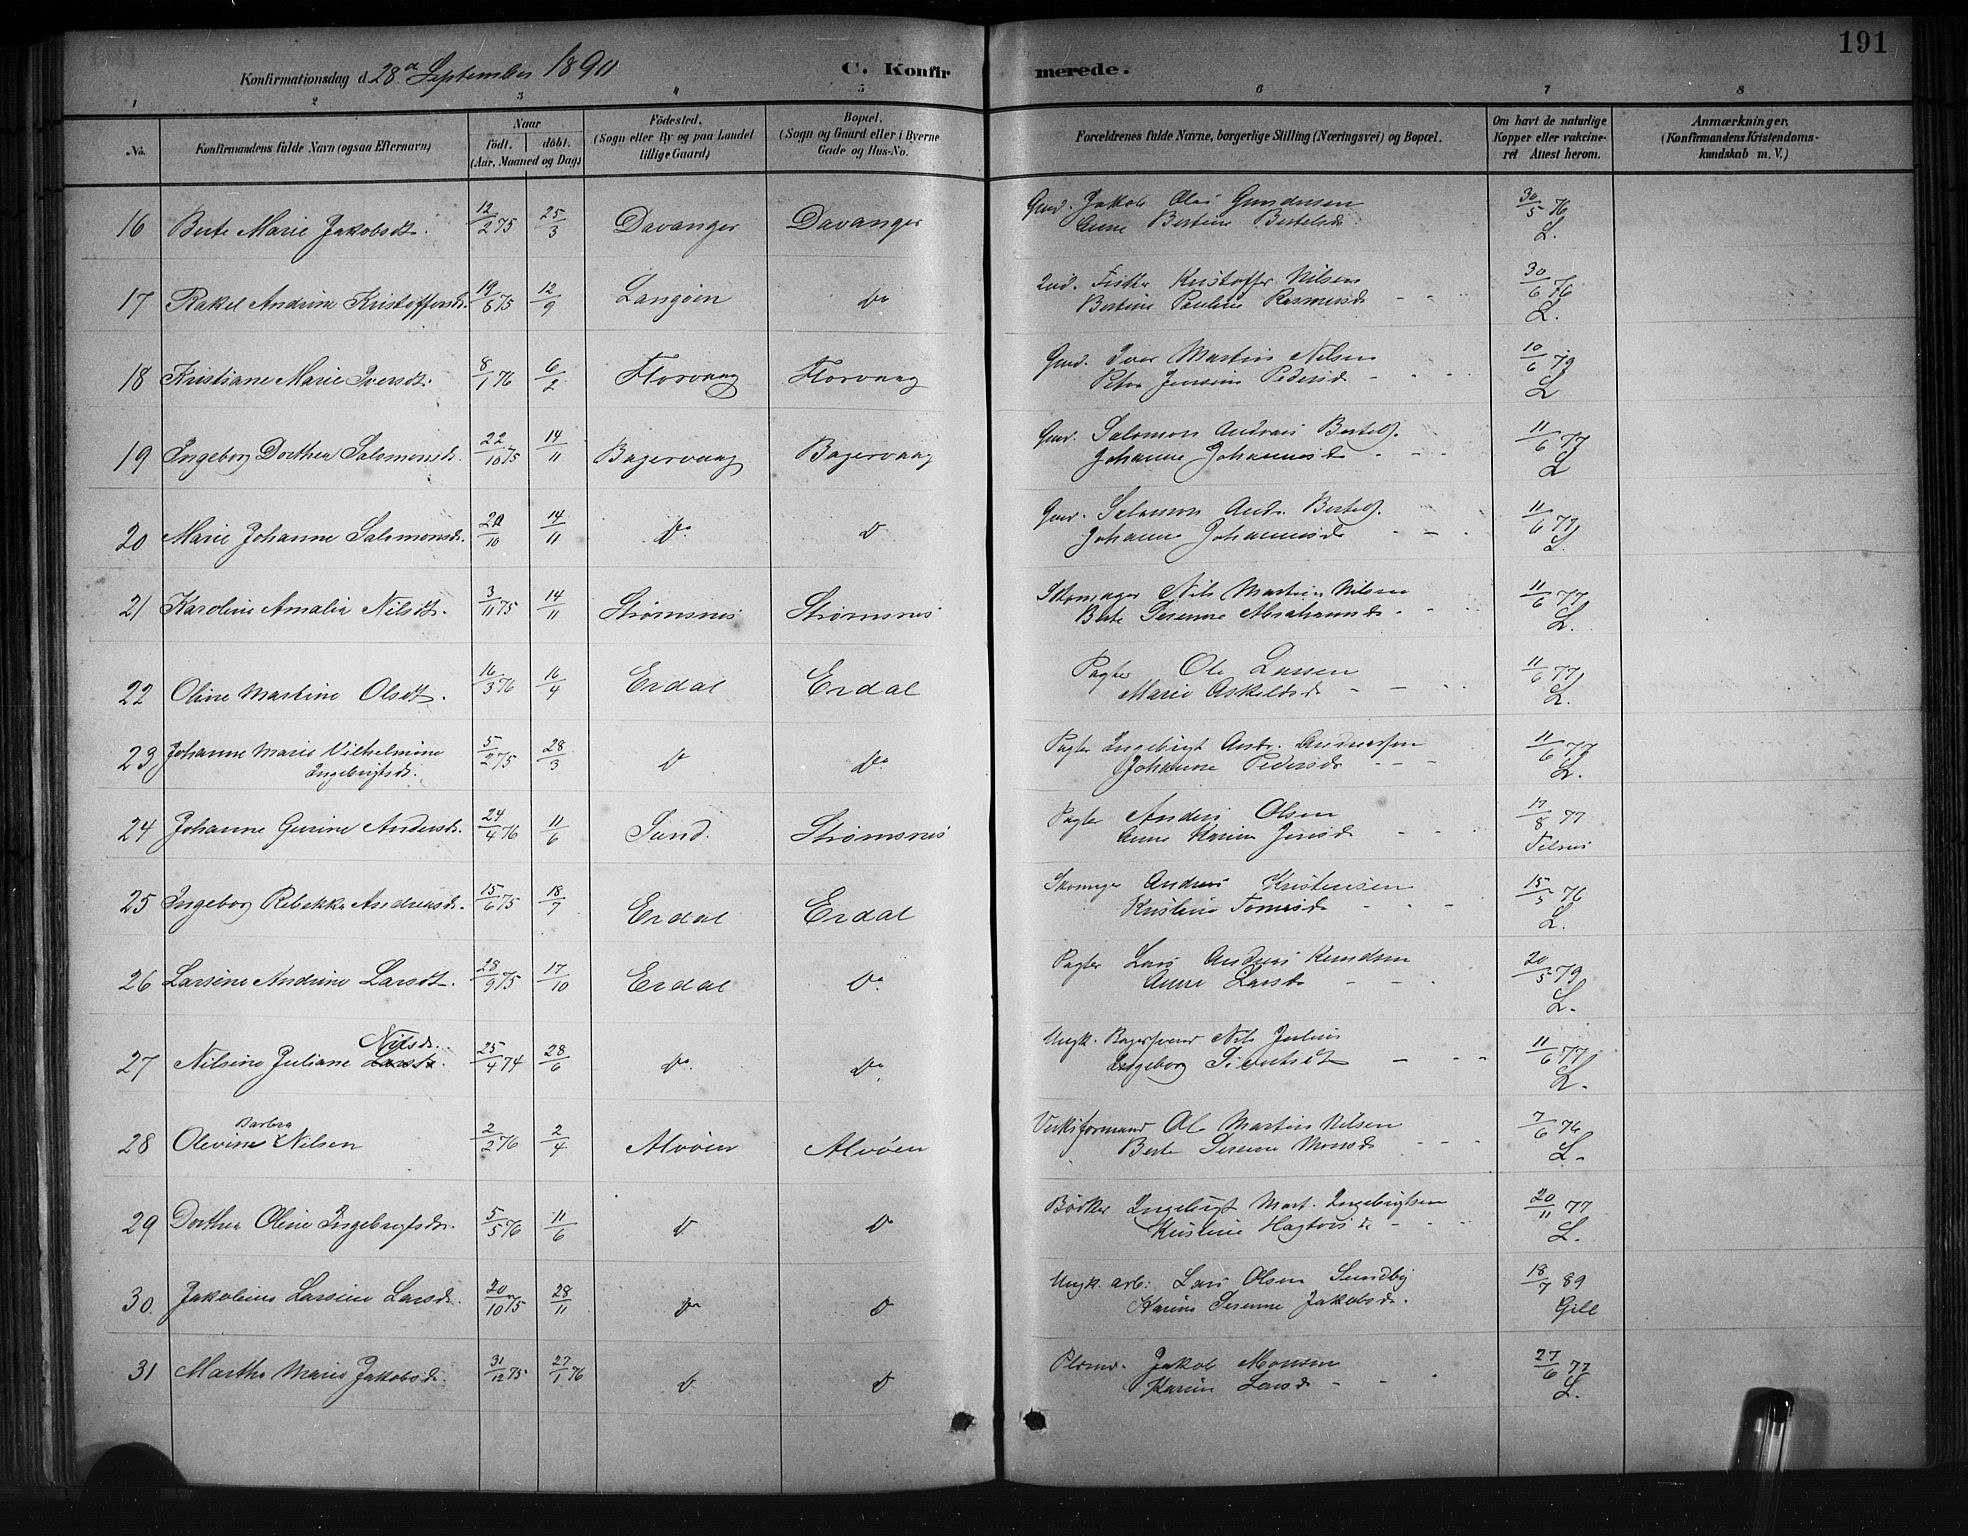 191
Konfirmationsdag d. 28de September 1890
C. Konfirmerede.
1 2 3 4 5 6 7 8
No. Konfirmandens fulde Navn (ogsaa Efternavn) Naar født. døbt. (Aar, Maaned og Dag) Fødested. (Sogn eller By og paa Landet tillige Gaard) Bopæl. (Sogn og Gaard eller i Byerne Gade og Hus-No. Forældrenes fulde Navne, borgerlige Stilling (Næringsvei) og Bopæl. Om havt de naturlige Kopper eller vakcineret Attest herom. Anmærkninger, (Konfirmandens Kristendomskundskab m. V.)
16 Berte Marie Jakobsdt. 12/2 75 25/3 Davanger Davanger Gmd. Jakob Olai Gundersen 30/5 76
Anne Bertine Bertelsd. L.
17 Rakel Andrine Kristoffersd. 19/6 75 12/9 Langøen Do Ind. Fisker Kristoffer Nilsen 30/6 76
Bertine Pauline Rasmusd. - - L.
18 Kristiane Marie Iversdt. 8/1 76 6/2 Florvaag Florvaag Gmd. Iver Martin Nilsen 10/6 79
Petra Jensine Pedersd. - - L
19 Ingeborg Dorthea Salomonsd. 22/10 75 14/11 Bagervaag Bagervaag Gmd. Salomon Andreas Bertels. 11/6 77
Johanne Johannesd. - - L
20 Marie Johanne Salomonsd. 20/10 14/11 Do Do Gmd. Salomon Andr. Bertels. 11/6 77
Johanne Johannesd. - - L.
21 Karoline Amalia Nilsdt. 3/11 75 14/11 Strømsnes Strømsnes Skomager Nils Martin Nilsen 11/6 77
Berte Serenne Abrahamsd. - L.
22 Oline Martine Olsdt. 16/3 76 16/4 Erdal Erdal Pagter Ole Larsen 11/6 77
Marie Askeldsd. - - L.
23 Johanne Marie Vilhelmine 5/2 75 28/3 Do Do Pagter Ingebrigt Andr. Andreassen 11/6 77
Ingebrigtsd. Johanne Pedersd. - - L.
24 Johanne Gurine Andersd. 24/4 76 11/6 Sund. Strømsnes Pagter Anders Olsen 17/8 77
Anne Karine Jensd. - -
25 Ingeborg Rebekka Andreasd. 15/6 75 18/7 Erdal Erdal Skomager Andreas Kristensen 15/5 76
Kristine Tomesd. - - L.
26 Larsine Andrine Larsdt. 28/9 75 17/10 Erdal Do Pagter Lars Andreas Knudsen 20/5 79
Anne Larsd. - - L.
27 Nilsine Juliane Larsd. Nilsd. 25/4 74 28/6 Do Do Ungk. Bagersvend Nils Julius 11/6 77
Ingeborg Sivertsdt - - L.
28 Olevine Barbra Nilsen 2/2 76 2/4 Alvøen Alvøen Verksformand Ole Martin Nilsen 7/6 76
Berte Serenne Monsd. - - L.
29 Dorthea Oline Ingebrigtsd. 5/5 76 11/6 Do Do Bødker Ingebrigt Mart. Ingebrigtsen 20/11 77
Kristine - - L.
30. Jakobine Larsine Larsd. 20/10 75 28/11 Do Do Ungk. arb: Lars Olsen Sundby 18/7 89
Karine Serenne Jakobsd. Gill
31 Martha Marie Jakobsd. 31/12 75 27/1 76 Do Do Jakob Monsen 27/6 77
Karine Larsd. - - L.